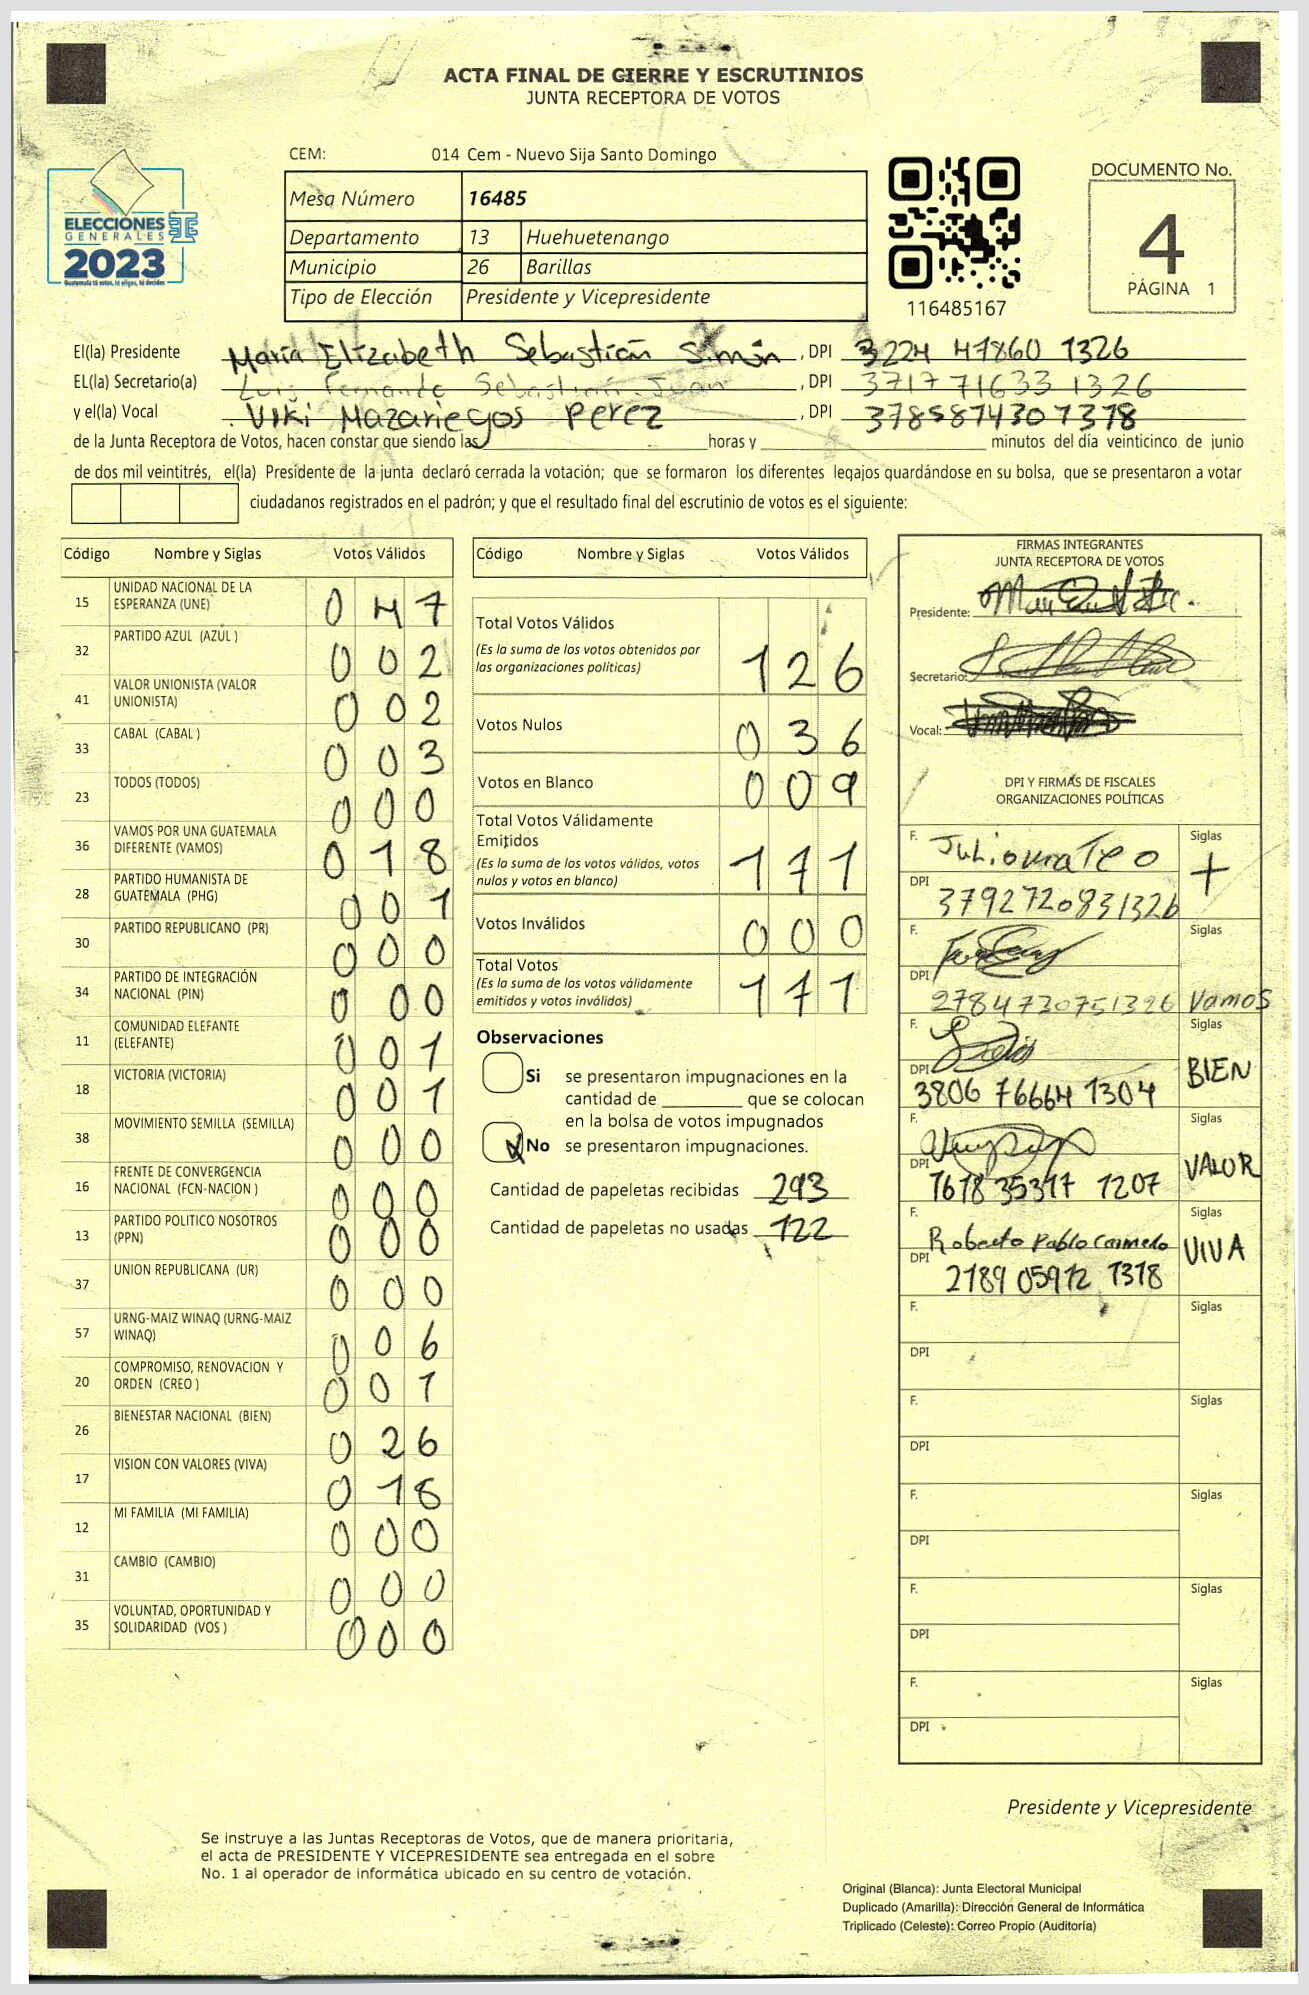 ACTA FINAL DE CIERRE Y ESCRUTINIOS
JUNTA RECEPTORA DE VOTOS
CEM: 014 Cem - Nuevo Sija Santo Domingo
ELECCIONES
GENERALES
2023
Guatemala tú votas, tú eliges, tú decides
Mesa Número 16485
Departamento 13 Huehuetenango
Municipio 26 Barillas
Tipo de Elección Presidente y Vicepresidente
116485167
DOCUMENTO No.
4
PÁGINA 1
El(la) Presidente Maria Elizabeth Sebastián Simón , DPI 3224 47860 1326
EL(la) Secretario(a) Luis Fernando Sebastian Juan , DPI 3717 71633 1326
y el(la) Vocal Viki Mazariegos Perez , DPI 3785874301318
de la Junta Receptora de Votos, hacen constar que siendo las horas y minutos del día veinticinco de junio
de dos mil veintitrés, el(la) Presidente de la junta declaró cerrada la votación; que se formaron los diferentes legajos quardándose en su bolsa, que se presentaron a votar
ciudadanos registrados en el padrón; y que el resultado final del escrutinio de votos es el siguiente:
Código Nombre y Siglas Votos Válidos
15 UNIDAD NACIONAL DE LA ESPERANZA (UNE) 047
32 PARTIDO AZUL (AZUL ) 002
41 VALOR UNIONISTA (VALOR UNIONISTA) 002
33 CABAL (CABAL ) 003
23 TODOS (TODOS) 000
36 VAMOS POR UNA GUATEMALA DIFERENTE (VAMOS) 018
28 PARTIDO HUMANISTA DE GUATEMALA (PHG) 001
30 PARTIDO REPUBLICANO (PR) 000
34 PARTIDO DE INTEGRACIÓN NACIONAL (PIN) 000
11 COMUNIDAD ELEFANTE (ELEFANTE) 001
18 VICTORIA (VICTORIA) 001
38 MOVIMIENTO SEMILLA (SEMILLA) 000
16 FRENTE DE CONVERGENCIA NACIONAL (FCN-NACION ) 000
13 PARTIDO POLITICO NOSOTROS (PPN) 000
37 UNION REPUBLICANA (UR) 000
57 URNG-MAIZ WINAQ (URNG-MAIZ WINAQ) 006
20 COMPROMISO, RENOVACION Y ORDEN (CREO ) 001
26 BIENESTAR NACIONAL (BIEN) 026
17 VISION CON VALORES (VIVA) 018
12 MI FAMILIA (MI FAMILIA) 000
31 CAMBIO (CAMBIO) 000
35 VOLUNTAD, OPORTUNIDAD Y SOLIDARIDAD (VOS ) 000
Código Nombre y Siglas Votos Válidos
Total Votos Válidos 126
(Es la suma de los votos obtenidos por
las organizaciones políticas)
Votos Nulos 036
Votos en Blanco 009
Total Votos Válidamente
Emitidos 171
(Es la suma de los votos válidos, votos
nulos y votos en blanco)
Votos Inválidos 000
Total Votos 171
(Es la suma de los votos válidamente
emitidos y votos inválidos)
Observaciones
Si se presentaron impugnaciones en la
cantidad de que se colocan
en la bolsa de votos impugnados
No se presentaron impugnaciones.
Cantidad de papeletas recibidas 293
Cantidad de papeletas no usadas 122
FIRMAS INTEGRANTES
JUNTA RECEPTORA DE VOTOS
Presidente:
Secretario:
Vocal:
DPI Y FIRMAS DE FISCALES
ORGANIZACIONES POLÍTICAS
F. Julio mateo Siglas +
DPI 3792720831326
F. Siglas
DPI 2784730751326 Vamos
F. Siglas BIEN
DPI 3806 76664 1304
F. Siglas VALOR
DPI 1618 35317 1207
F. Roberto Pablo Carmelo Siglas VIVA
DPI 2189 05912 1318
F. Siglas
DPI
F. Siglas
DPI
F. Siglas
DPI
F. Siglas
DPI
F. Siglas
DPI
Presidente y Vicepresidente
Se instruye a las Juntas Receptoras de Votos, que de manera prioritaria,
el acta de PRESIDENTE Y VICEPRESIDENTE sea entregada en el sobre
No. 1 al operador de informática ubicado en su centro de votación.
Original (Blanca): Junta Electoral Municipal
Duplicado (Amarilla): Dirección General de Informática
Triplicado (Celeste): Correo Propio (Auditoría)